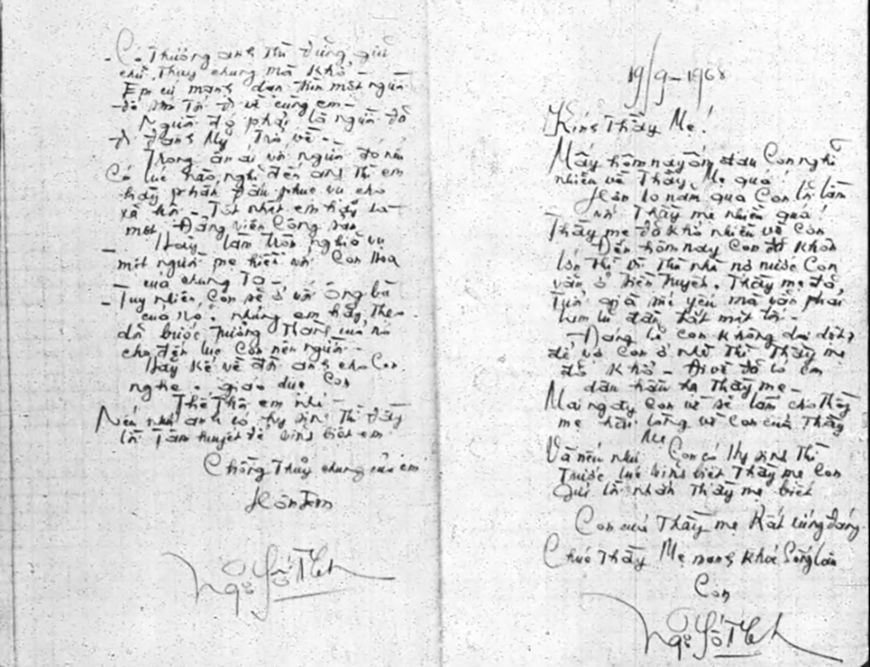 - Có thương anh thì đừng giữ
chữ thuỷ chung mà khổ -
Em cứ mạnh dạn tìm một người
để xây tổ về cùng em -
Người đó phải là người đỏ
đi đánh Mỹ trở về -
Trong ân ái với người đó nếu
Có lúc nào nghĩ đến anh thì em
hãy phấn đấu phục vụ cho
xã hội - Tốt nhất em hãy là
một Đảng viên Cộng sản
- Hãy làm tròn nghĩa vụ
một người mẹ hiền với Con Hoa
của chúng Ta -
- Tuy nhiên, Con sẽ ở với ông bà
của nó. nhưng em hãy theo
dõi bước trưởng Thành của nó
cho đến lúc Con nên người -
Hãy kể về đời anh cho Con
nghe - giáo dục Con
Thế Thôi em nhé -
Nếu như anh có hy sinh Thì đây
là Tâm huyết để vĩnh biệt em
Chồng Thuỷ chung của em
Hôn Em
Ngô
19/9-1968
Kính Thầy Mẹ!
Mấy hôm nay ốm đau Con nghĩ
nhiều về Thầy Mẹ quá!
Hơn 10 năm qua Con lỗi lầm
với Thầy mẹ nhiều quá!
Thầy mẹ đã khổ nhiều về Con
Đến hôm nay Con đã khôn
lớn Thì vì Thù nhà nợ nước Con
vẫn ở tiền tuyến. Thầy mẹ đó,
Tuổi già sức yếu mà vẫn phải
lam lũ dắt một tôi -
Đáng lẽ con không dại dột
để vợ con ở nhà Thì Thầy mẹ
đỡ Khổ - Ai về đó có em
dâu hầu hạ Thầy mẹ -
Mai ngày Con về sẽ làm cho Thầy
mẹ hài lòng về Con của Thầy
Mẹ
Và nếu như Con có Hy sinh Thì
Trước lúc vĩnh biệt Thầy mẹ Con
Gửi lời nhắn Thầy mẹ biết
Con của Thầy mẹ Rất xứng đáng.
Chúc Thầy Mẹ mạnh khoẻ Sống lâu
Con
Ngô